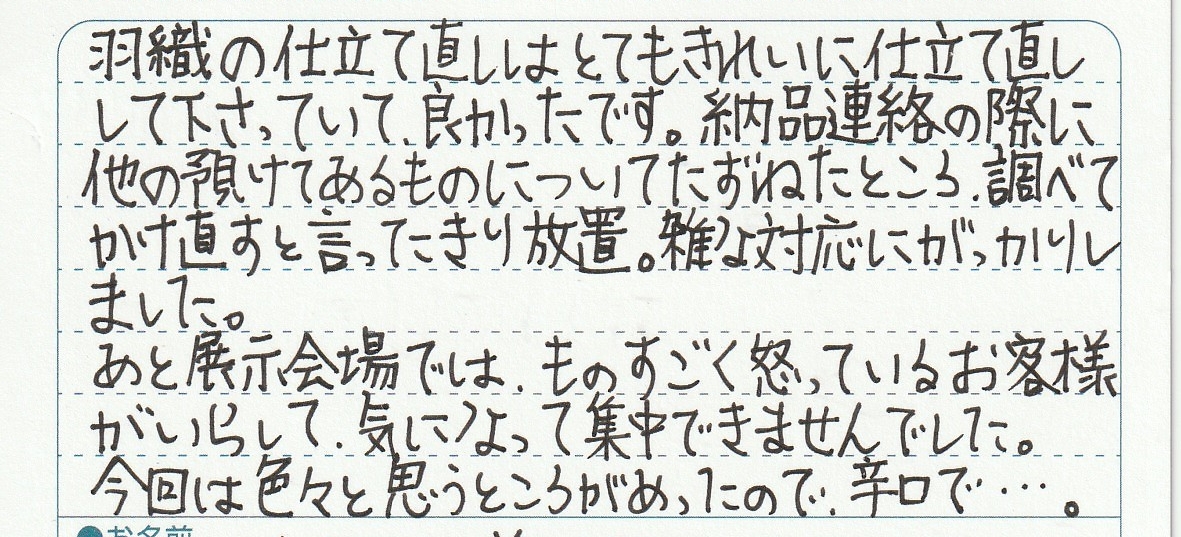 羽織の仕立て直しはとてもきれいに仕立て直し
して下さっていて、良かったです。納品連絡の際に
他の預けてあるものについてたずねたところ、調べて
かけ直すと言ったきり放置。雑な対応にがっかりし
ました。
あと展示会場では、ものすごく怒っているお客様
がいらして、気になって集中できませんでした。
今回は色々と思うところがあったので、辛口で…。
●お名前